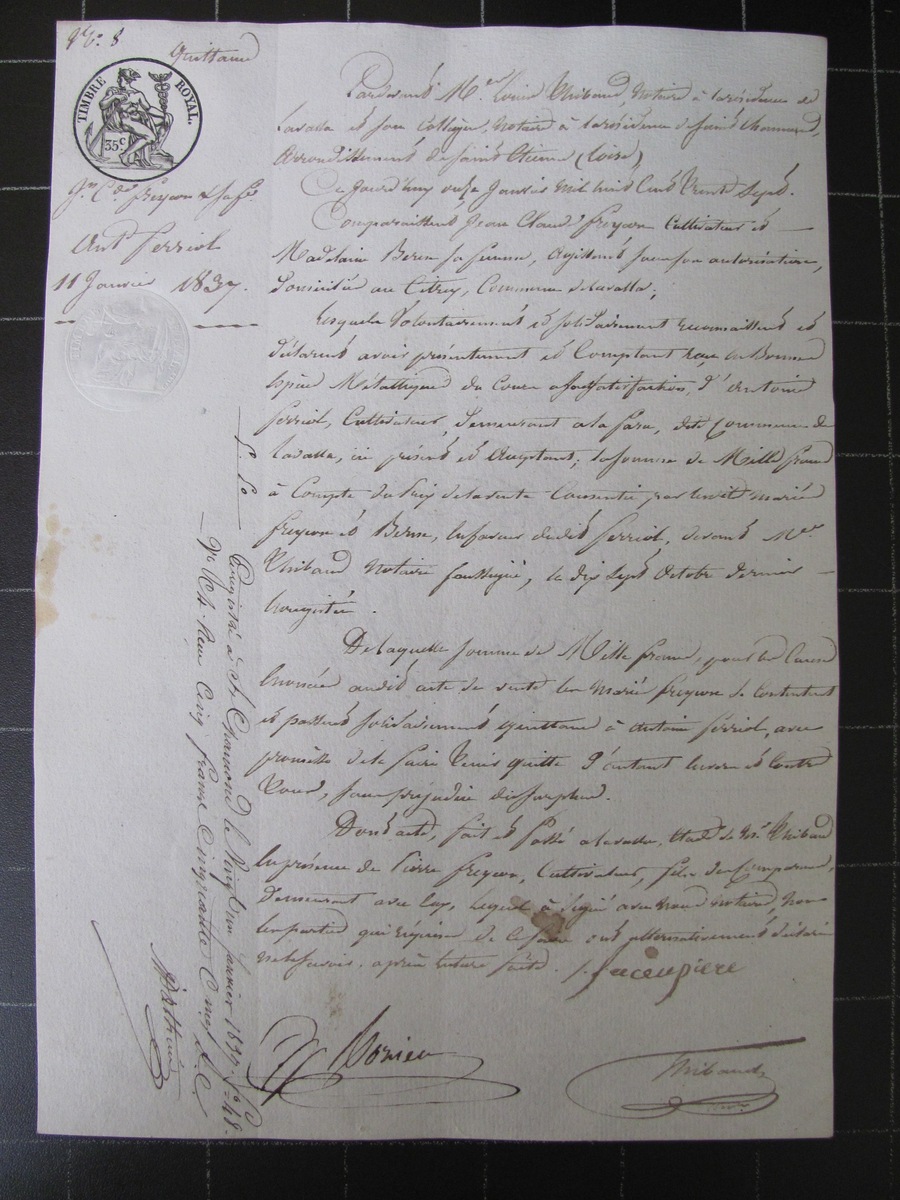 N°. 8
Quittance
TIMBRE ROYAL.
35.c
Jn Cde freycon & sa fe
Ant. Ferriol
11 Janvier 1837.
Pardevant Me. Louis Thibaud, Notaire à la résidence de
Lavalla et son Collègue, Notaire à la résidence de Saint Chamond,
arrondissement de Saint Etienne (Loire)
Ce Jourd'huy onze Janvier Mil huit Cent Trente Sept.
Comparaissent Jean Claude freycon Cultivateur et
Madelaine sa femme, agissant sous son autorisation,
domiciliés au Citrey, Commune de Lavalla;
Lesquels Volontairement et solidairement reconnaissent et
déclarent avoir présentement et Comptant reçu en Bonnes
espèces Métalliques du Cours à leur satisfaction, d'antoine
ferriol, Cultivateur, demeurant à la fara, dite Commune de
Lavalla, ici présent et acceptant; la somme de Mille francs
à Compte du Prix de la vente Consentie par lesdits mariés
freycon et en faveur dudit ferriol, devant Me.
Thibaud Notaire soussigné, le dix sept octobre dernier
Enregistrée.
De laquelle somme de Mille francs, pour les Causes
énoncées audit acte de vente les mariés freycon se contentent
et passent solidairement quittance à antoine ferriol, avec
promesse de le faire Tenir quitte d'autant envers et contre
Tous, sans préjudice du surplus.
Dont acte, fait et Passé à Lavalla, Etude de Me. Thibaud
En présence de Pierre freycon, Cultivateur, fils des Comparants,
demeurant avec Eux, lequel à signé avec nous notaires, Non
les parties qui requises de le faire ont alternativement déclaré
ne le savoir. après lecture faite.
Thibaud
Enregistré à St Chamond le Vingt un janvier 1837. fo. 48.
Reçu Cinq francs Cinquante Cent. d. C.